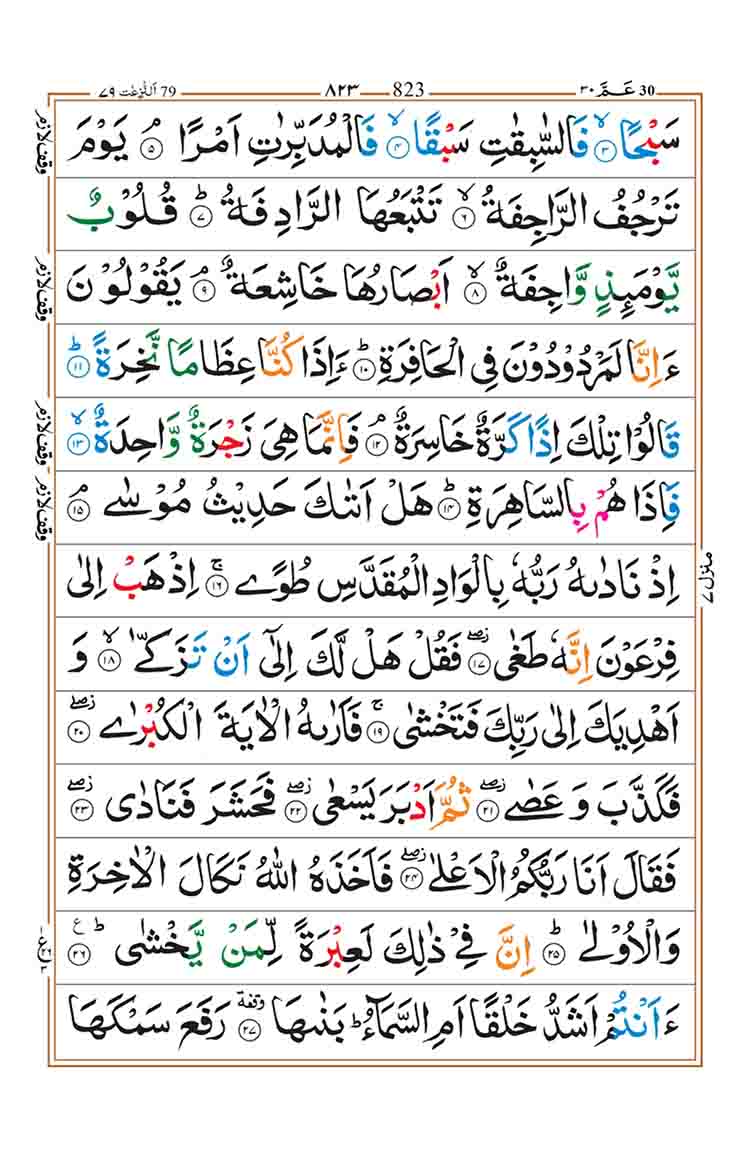 79 اَلنّٰزِعٰت ٧٩ 823 ٨٢٣ 30 عَـمَّ ٣٠
سَبْحًا ۙ﴿۳﴾ فَالسّٰبِقٰتِ سَبْقًا ۙ﴿۴﴾ فَالْمُدَبِّرٰتِ اَمْرًا ۘ﴿۵﴾ يَوْمَ
تَرْجُفُ الرَّاجِفَةُ ۙ﴿۶﴾ تَتْبَعُهَا الرَّادِفَةُ ؕ﴿۷﴾ قُلُوْبٌ
يَّوْمَئِذٍ وَّاجِفَةٌ ۙ﴿۸﴾ اَبْصَارُهَا خَاشِعَةٌ ۘ﴿۹﴾ يَقُوْلُوْنَ
ءَاِنَّا لَمَرْدُوْدُوْنَ فِى الْحَافِرَةِ ؕ﴿۱۰﴾ ءَاِذَا كُنَّا عِظَامًا نَّخِرَةً ؕ﴿۱۱﴾
قَالُوْا تِلْكَ اِذًا كَرَّةٌ خَاسِرَةٌ ۘ﴿۱۲﴾ فَاِنَّمَا هِىَ زَجْرَةٌ وَّاحِدَةٌ ۙ﴿۱۳﴾
فَاِذَا هُمْ بِالسَّاهِرَةِ ؕ﴿۱۴﴾ هَلْ اَتٰٮكَ حَدِيْثُ مُوْسٰى ۘ﴿۱۵﴾
اِذْ نَادٰٮهُ رَبُّهٗ بِالْوَادِ الْمُقَدَّسِ طُوًى ۚ﴿۱۶﴾ اِذْهَبْ اِلٰى
فِرْعَوْنَ اِنَّهٗ طَغٰى ۖ﴿۱۷﴾ فَقُلْ هَلْ لَّكَ اِلٰٓى اَنْ تَزَكّٰى ۙ﴿۱۸﴾ وَ
اَهْدِيَكَ اِلٰى رَبِّكَ فَتَخْشٰى ۚ﴿۱۹﴾ فَاَرٰٮهُ الْاٰيَةَ الْكُبْرٰى ۖ﴿۲۰﴾
فَكَذَّبَ وَ عَصٰى ۖ﴿۲۱﴾ ثُمَّ اَدْبَرَ يَسْعٰى ۖ﴿۲۲﴾ فَحَشَرَ فَنَادٰى ۖ﴿۲۳﴾
فَقَالَ اَنَا رَبُّكُمُ الْاَعْلٰى ۖ﴿۲۴﴾ فَاَخَذَهُ اللّٰهُ نَكَالَ الْاٰخِرَةِ
وَالْاُوْلٰى ؕ﴿۲۵﴾ اِنَّ فِىْ ذٰلِكَ لَعِبْرَةً لِّمَنْ يَّخْشٰى ؕ﴿۲۶﴾ ع
ءَاَنْتُمْ اَشَدُّ خَلْقًا اَمِ السَّمَآءُ ؕ بَنٰٮهَا ﴿۲۷﴾ وقفة رَفَعَ سَمْكَهَا
وقف لازم
وقف لازم
وقف لازم
وقف لازم
منزل ٧